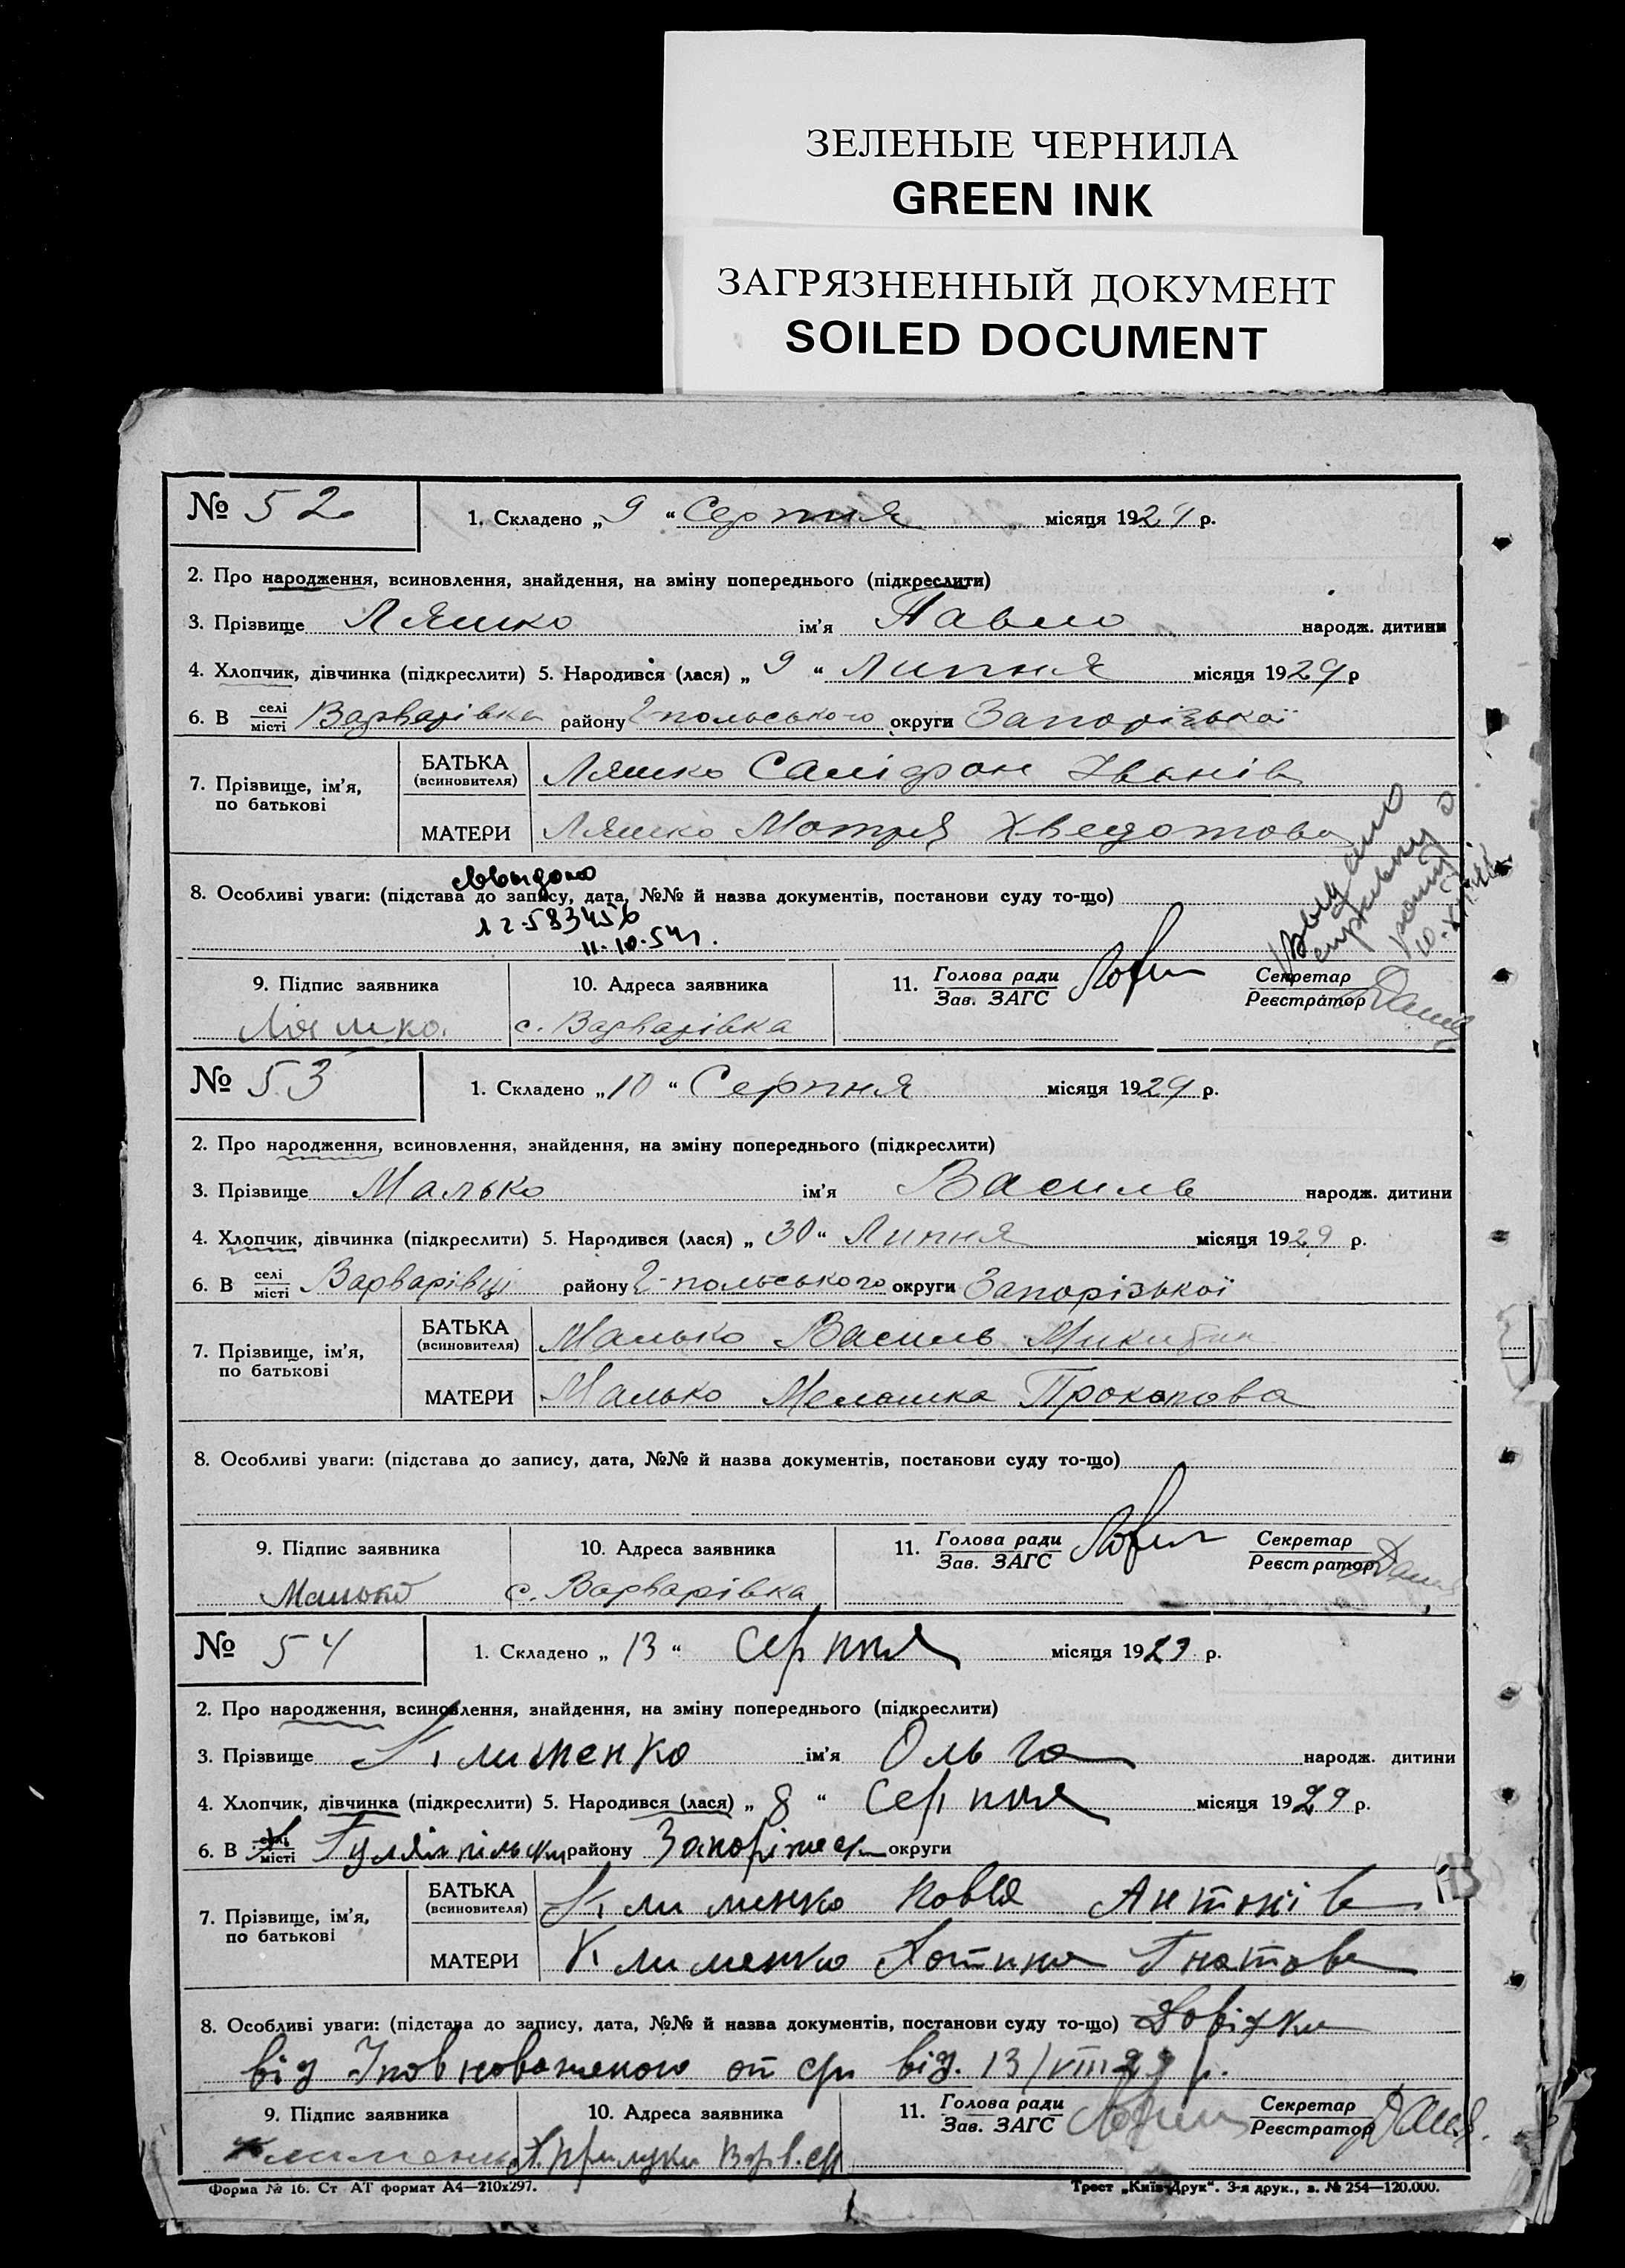 ЗЕЛЕНЫЕ ЧЕРНИЛА
GREEN INK
ЗАГРЯЗНЕННЫЙ ДОКУМЕНТ
SOILED DOCUMENT
№ 52 1. Складено „ 9 “ Серпня місяця 1929 р.
2. Про народження, всиновлення, знайдення, на зміну попереднього (підкреслити)
3. Прізвище Ляшко ім’я Павло народж. дитини
4. Хлопчик, дівчинка (підкреслити) 5. Народився (лася) „ 9 “ Липня місяця 1929 р
6. В селі місті Варварівка району Г-польського округи Запорізької
7. Прізвище, ім’я, по батькові
БАТЬКА (всиновителя) Ляшко Саліфон Іванів
МАТЕРИ Ляшко Мотря Хведотова
8. Особливі уваги: (підстава до запису, дата, №№ й назва документів, постанови суду то-що)
11.10.54
9. Підпис заявника 10. Адреса заявника 11. Голова ради Зав. ЗАГС Секретар Реєстратор
Ляшко с. Варварівка
№ 53 1. Складено „ 10 “ Серпня місяця 1929 р.
2. Про народження, всиновлення, знайдення, на зміну попереднього (підкреслити)
3. Прізвище Малько ім’я Василь народж. дитини
4. Хлопчик, дівчинка (підкреслити) 5. Народився (лася) „ 30 “ Липня місяця 1929 р.
6. В селі місті Варварівці району Г-польського округи Запорізької
7. Прізвище, ім’я, по батькові
БАТЬКА (всиновителя) Малько Василь
МАТЕРИ Малько Мелашка Прокопова
8. Особливі уваги: (підстава до запису, дата, №№ й назва документів, постанови суду то-що)
9. Підпис заявника 10. Адреса заявника 11. Голова ради Зав. ЗАГС Секретар Реєстратор
Малько с. Варварівка
№ 54 1. Складено „ 13 “ Серпня місяця 1929 р.
2. Про народження, всиновлення, знайдення, на зміну попереднього (підкреслити)
3. Прізвище Клименко ім’я Ольга народж. дитини
4. Хлопчик, дівчинка (підкреслити) 5. Народився (лася) „ 8 “ Серпня місяця 1929 р.
6. В селі місті району округи
7. Прізвище, ім’я, по батькові
БАТЬКА (всиновителя) Клименко Антонів
МАТЕРИ Клименко Гнатова
8. Особливі уваги: (підстава до запису, дата, №№ й назва документів, постанови суду то-що) Довідка
від від. 13/VIII 29 р.
9. Підпис заявника 10. Адреса заявника 11. Голова ради Зав. ЗАГС Секретар Реєстратор
Форма № 16. Ст АТ формат А4—210х297. Трест „Київ-Друк“. 3-я друк., з. № 254—120.000.